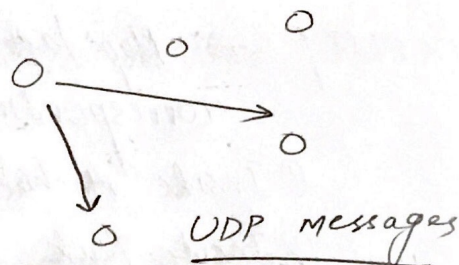 UDP messages